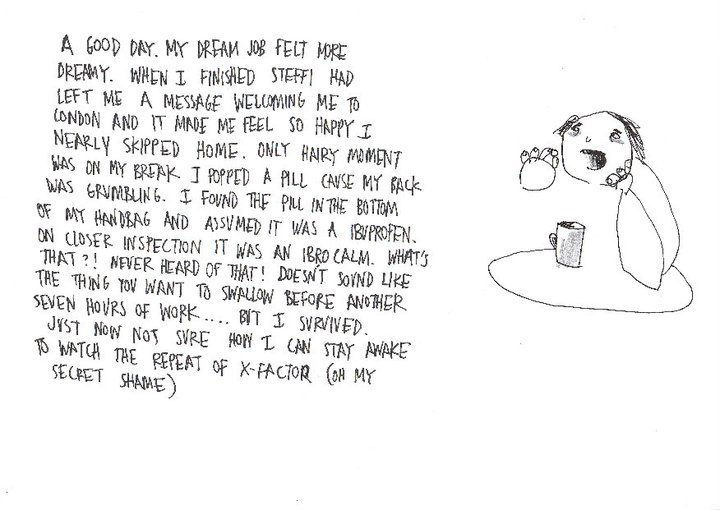 A GOOD DAY. MY DREAM JOB FELT MORE
DREAMY. WHEN I FINISHED STEFFI HAD
LEFT ME A MESSAGE WELCOMING ME TO
LONDON AND IT MADE ME FEEL SO HAPPY I
NEARLY SKIPPED HOME. ONLY HAIRY MOMENT
WAS ON MY BREAK I POPPED A PILL CAUSE MY BACK
WAS GRUMBLING. I FOUND THE PILL IN THE BOTTOM
OF MY HANDBAG AND ASSUMED IT WAS A IBUPROFEN.
ON CLOSER INSPECTION IT WAS AN IBRO CALM. WHAT'S
THAT?! NEVER HEARD OF THAT! DOESN'T SOUND LIKE
THE THING YOU WANT TO SWALLOW BEFORE ANOTHER
SEVEN HOURS OF WORK.... BUT I SURVIVED.
JUST NOW NOT SURE HOW I CAN STAY AWAKE
TO WATCH THE REPEAT OF X-FACTOR (OH MY
SECRET SHAME)